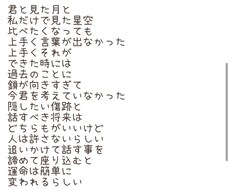 君と見た月と
私だけで見た星空
比べたくなっても
上手く言葉が出なかった
上手くそれが
できた時には
過去のことに
鎖が向きすぎて
今君を考えていなかった
隠したい傷跡と
話すべき将来は
どちらもがいいけど
人は許さないらしい
追いかけて話す事を
諦めて座り込むと
運命は簡単に
変われるらしい